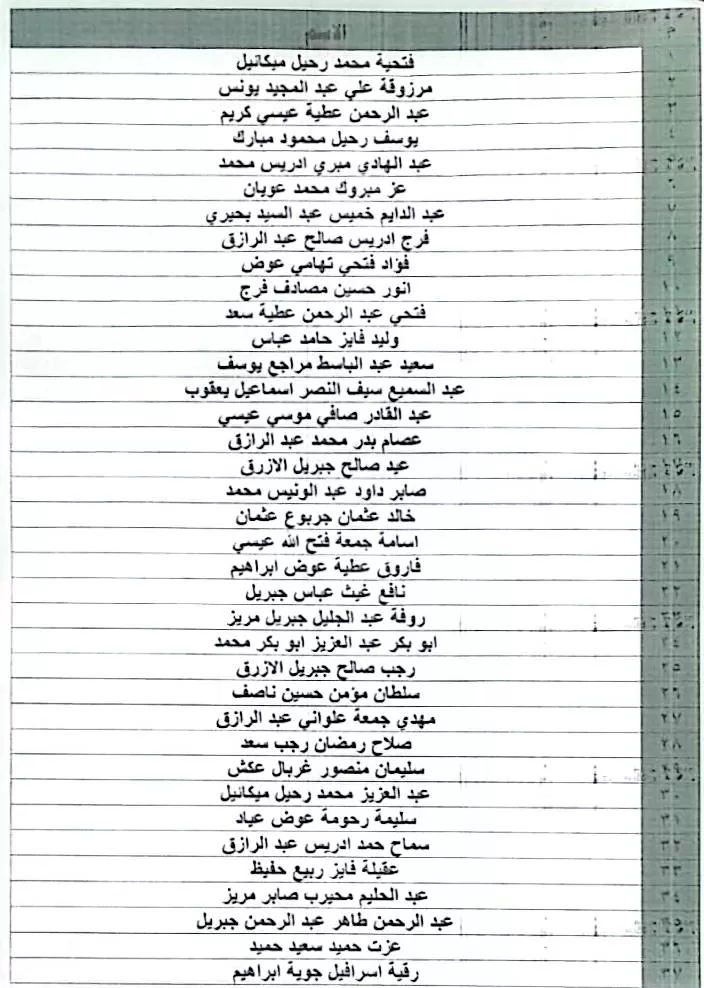 م الاسم
١ فتحية محمد رحيل ميكائيل
٢ مرزوقة علي عبد المجيد يونس
٣ عبد الرحمن عطية عيسي كريم
٤ يوسف رحيل محمود مبارك
عبد الهادي مبري ادريس محمد
٦ عز مبروك محمد عويان
٧ عبد الدايم خميس عبد السيد بحيري
٨ فرج ادريس صالح عبد الرازق
٩ فؤاد فتحي تهامي عوض
١٠ انور حسين مصادف فرج
فتحي عبد الرحمن عطية سعد
١٢ وليد فايز حامد عباس
١٣ سعيد عبد الباسط مراجع يوسف
١٤ عبد السميع سيف النصر اسماعيل يعقوب
١٥ عبد القادر صافي موسي عيسي
١٦ عصام بدر محمد عبد الرازق
عيد صالح جبريل الازرق
١٨ صابر داود عبد الونيس محمد
١٩ خالد عثمان جربوع عثمان
٢٠ اسامة جمعة فتح الله عيسي
٢١ فاروق عطية عوض ابراهيم
٢٢ نافع غيث عباس جبريل
روفة عبد الجليل جبريل مريز
٢٤ ابو بكر عبد العزيز ابو بكر محمد
٢٥ رجب صالح جبريل الازرق
٢٦ سلطان مؤمن حسين ناصف
٢٧ مهدي جمعة علواني عبد الرازق
٢٨ صلاح رمضان رجب سعد
سليمان منصور غربال عكش
٣٠ عبد العزيز محمد رحيل ميكائيل
٣١ سليمة رحومة عوض عياد
٣٢ سماح حمد ادريس عبد الرازق
٣٣ عقيلة فايز ربيع حفيظ
٣٤ عبد الحليم محيرب صابر مريز
٣٥ عبد الرحمن طاهر عبد الرحمن جبريل
٣٦ عزت حميد سعيد حميد
٣٧ رقية اسرافيل جوية ابراهيم